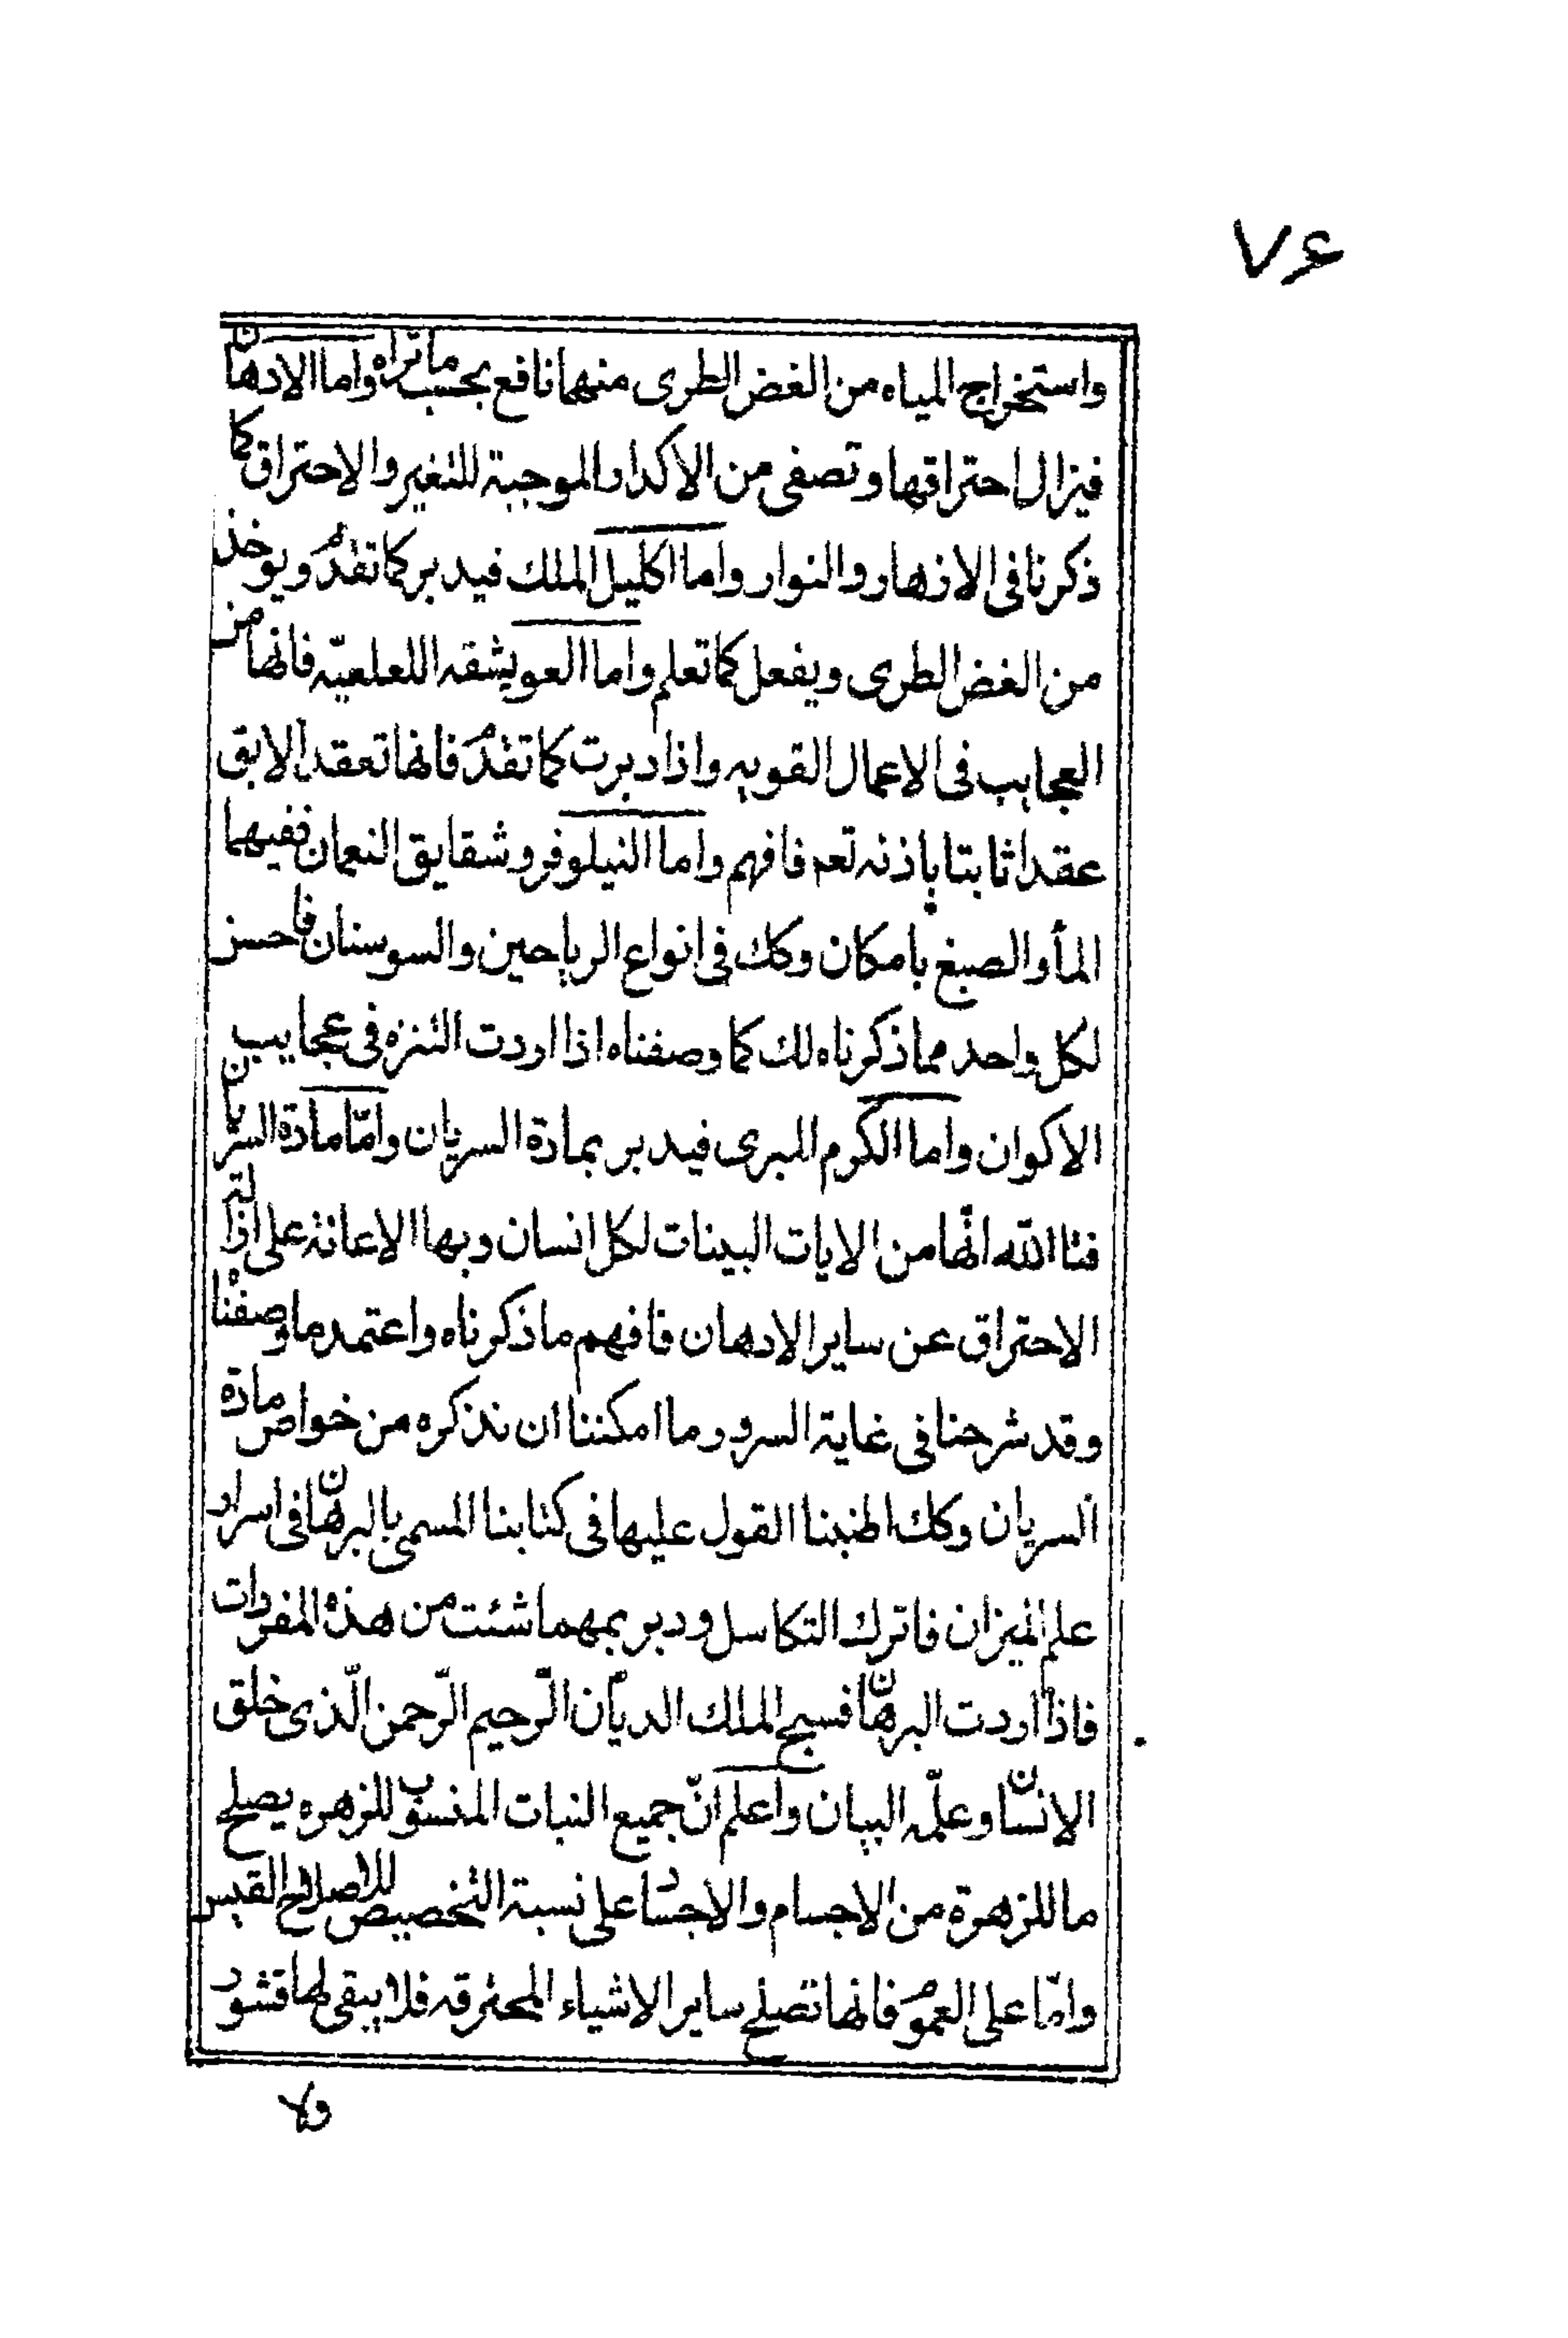 ۷۶
واستخراج المياه من الغض الطرى منهما نافع بحسب ما تراه واما الادهان
فيزال احتراقها وتصفى من الاكدار الموجبة للتغير والاحتراق كما
ذكرنا فى الازهار والنوار واما اكليل الملك فيدبر كما تقدم ويوخذ
من الغض الطرى ويفعل كما تعلم واما العويشقه اللعلعيّه فانها من
العجايب فى الاعمال القويه واذا دبرت كما تقدم فانها تعقد الابق
عقدا ثابتا باذنه تعم فافهم واما النيلوفر وشقايق النعمان ففيهما
المأ والصبغ بامكان وكك فى انواع الرياحين والسوسنان فاحسن
لكل واحد مما ذكرناه لك كما وصفناه اذا اردت التنزه فى عجايب
الاكوان واما الكرم البرى فيدبر بمادة السريان وامّا مادة السريان
فتا الله انّها من الايات البينات لكل انسان وبها الاعانة على اذالة
الاحتراق عن ساير الادهان فافهم ما ذكرناه واعتمد ما وصفناه
وقد شرحنا فى غاية السرور ما امكننا ان نذكره من خواص مادة
السريان وكك اطنبنا القول عليها فى كتابنا المسمى بالبرهان فى اسرار
علم الميزان فاترك التكاسل ودبر بمهما شئت من هذه المفردات
فاذا اردت البرهان فسبح الملك الديّان الرّحيم الرّحمن الّذى خلق
الانسان وعلّمه البيان واعلم انّ جميع النبات المنسوب للزهره يصلح
ما للزهرة من الاجسام والاجساد على نسبة التخصيص للاصلاح القبس
وامّا على العموم فانها تصلح ساير الاشياء المحترقه فلا يبقى لها قشور
ولا